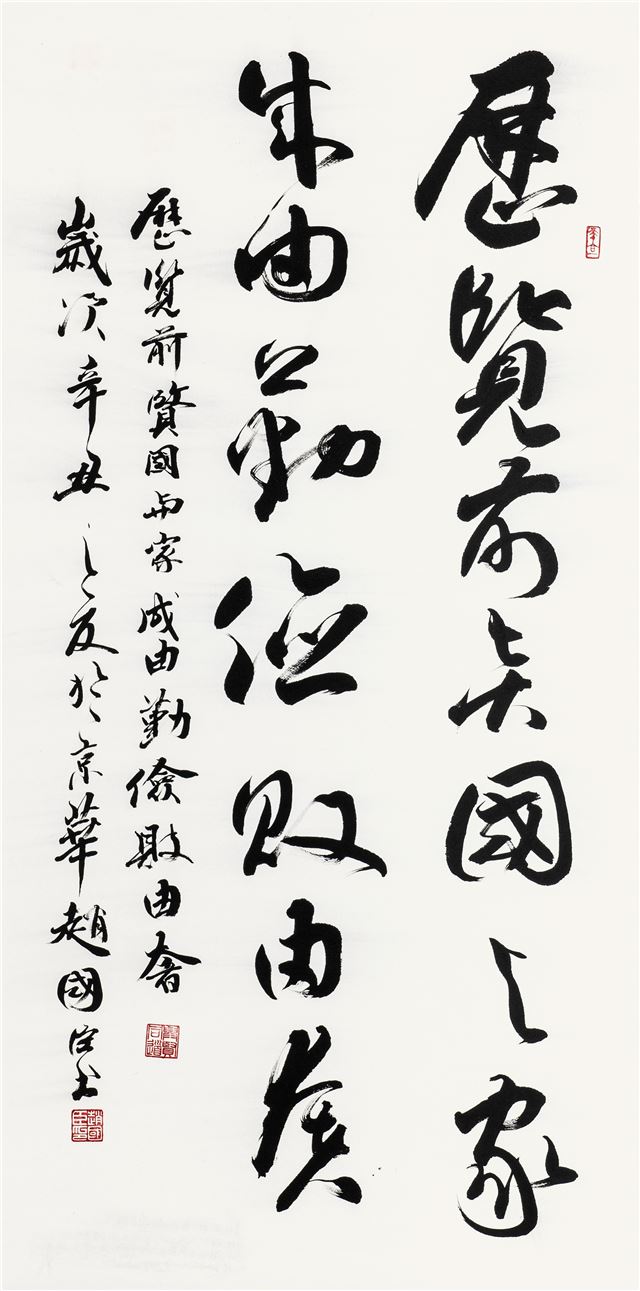 歷覽前賢國与家
成由勤儉敗由奢
歷覽前賢國与家成由勤儉敗由奢
歲次辛丑之夏於京華趙國書
辛丑